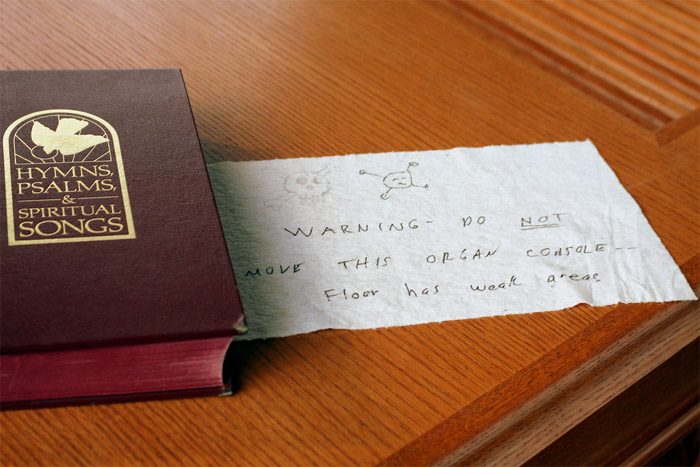 HYMNS,
PSALMS,
&
SPIRITUAL
SONGS
WARNING - DO NOT
MOVE THIS ORGAN CONSOLE--
Floor has weak areas